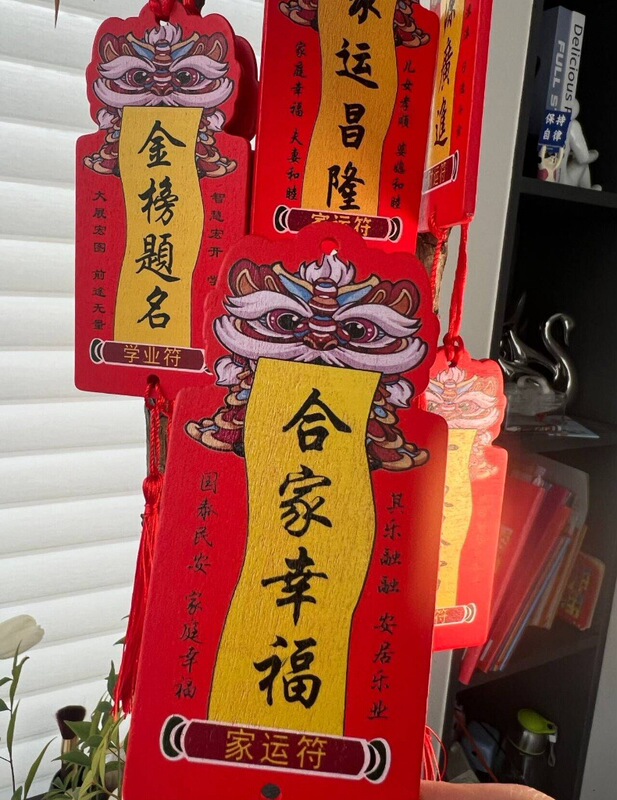 金榜題名
智慧宏开
大展宏图 前途无量
学业符
家运昌隆
儿女孝順 婆媳和睦
家庭幸福 夫妻和睦
家运符
廣進
合家幸福
其乐融融 安居乐业
国泰民安 家庭幸福
家运符
Delicious
FULL
保持
自律